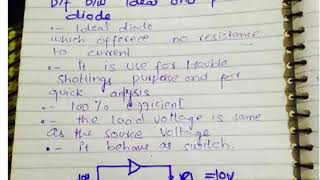 Dif b/w Ideal and P
diode
:- Ideal diode
which offerece no resistance
to current
:- It is use for trouble
shottings purpose and for
quick
:- 100% efficient
:- the load voltage is same
as the source voltage
:- it behave as switch.
10V =10V